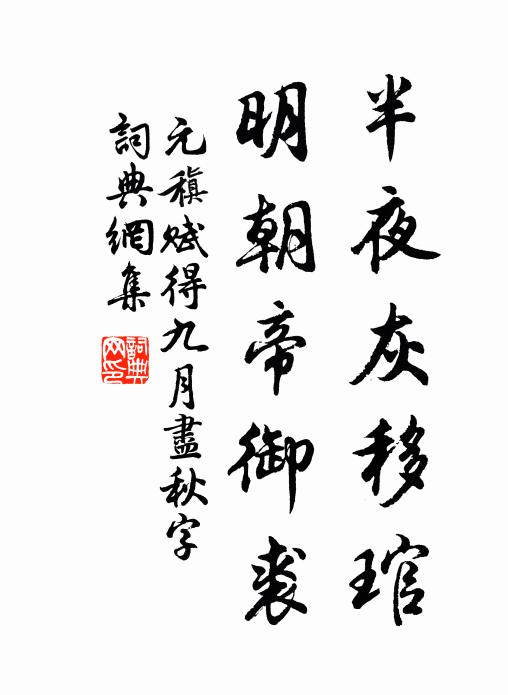 半夜灰移琯
明朝帝御裘
元稹賦得九月盡秋字
詞典網集
詞典網印